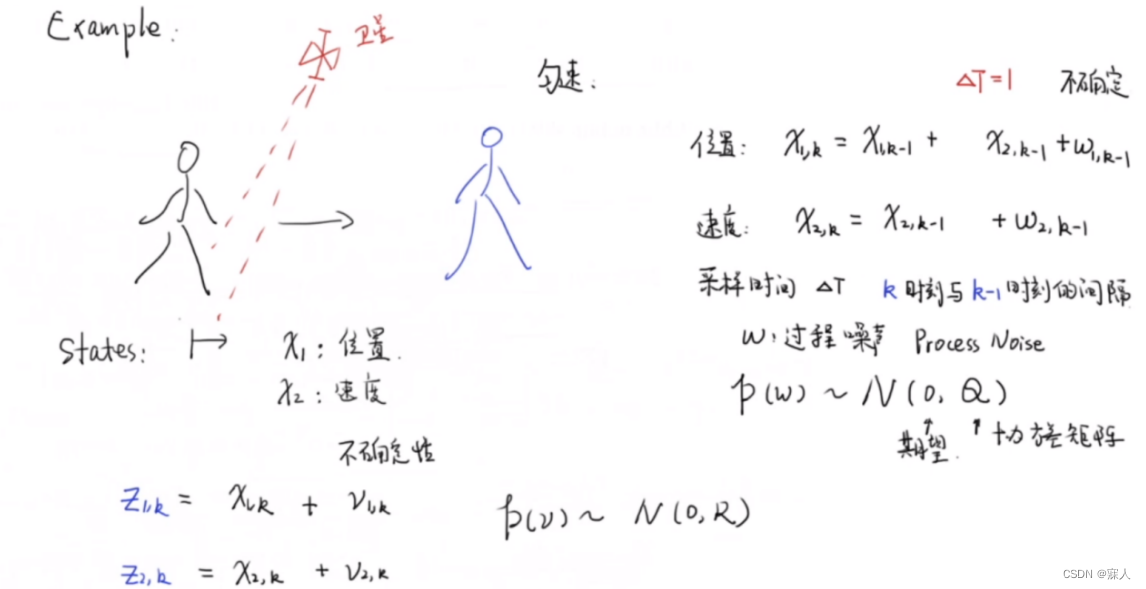 Example:
卫星
匀速:
ΔT=1 不确定
位置: X₁,ₖ = X₁,ₖ₋₁ + X₂,ₖ₋₁ + W₁,ₖ₋₁
速度: X₂,ₖ = X₂,ₖ₋₁ + W₂,ₖ₋₁
采样时间 ΔT k时刻与k-1时刻的间隔
W: 过程噪声 Process Noise
P(w) ~ N(0, Q)
期望 协方差矩阵
States: X₁: 位置.
X₂: 速度
不确定性
Z₁,ₖ = X₁,ₖ + V₁,ₖ
P(v) ~ N(0, R)
Z₂,ₖ = X₂,ₖ + V₂,ₖ
CSDN @寐人